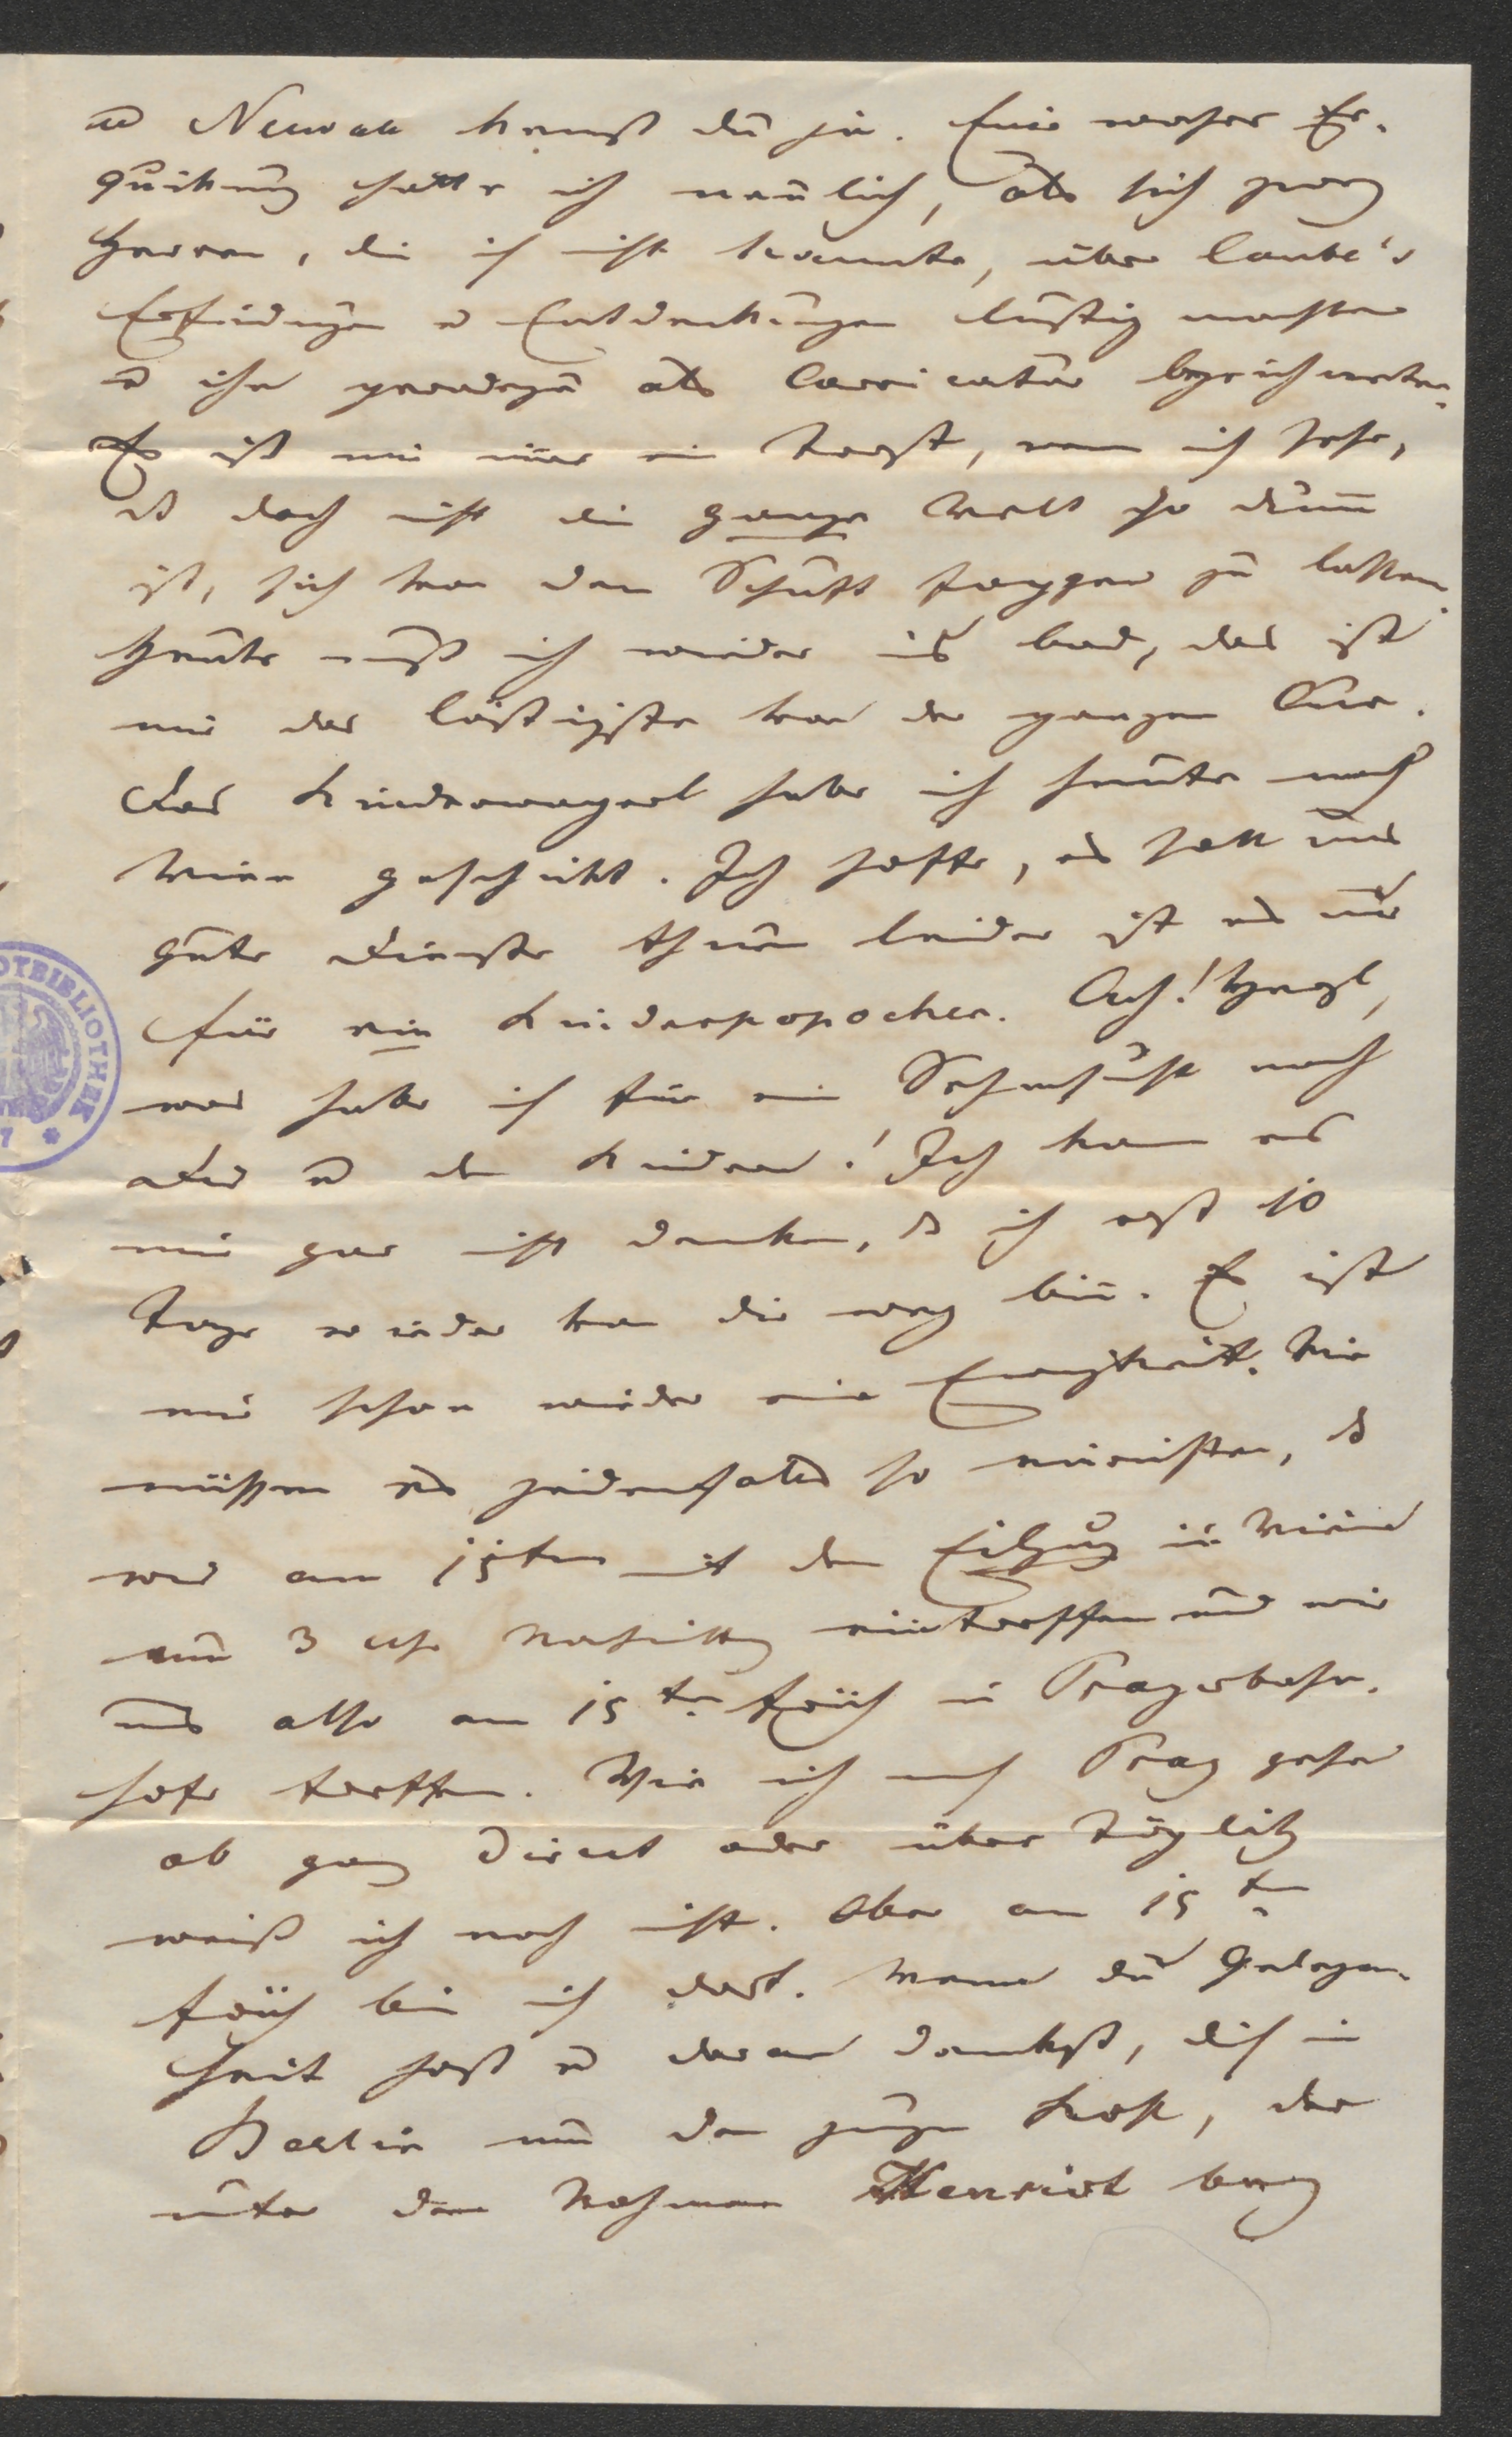 u Neuwall kennst du ja. Eine wahre Er-
quikung hatte ich neulich, als sich zwey
Herren, die ich nicht kannte, über Laube's
Erfindungen u Entdeckungen lustig machten
u ihn geradezu als Carricatur bezeichneten.
Es ist mir immer ein Trost, wenn ich sehe,
dß doch nicht die ganze Welt so dum̄
ist, sich von dem Schuft foppen zu lassen.
Heute muß ich wieder ins Bad, das ist
mir das lästigste von der ganzen Cur.
Das Kinderwagerl habe ich heute nach
Wien geschickt. Ich hoffe, es soll uns
gute Dienste thun leider ist es nur
für ein Kinderpopochen. Ach! Herzl,
was habe ich für eine Sehnsucht nach
Dir u den Kindern! Ich kann es
mir gar nicht denken, dß ich erst 10
Tage wieder von dir weg bin. Es ist
mir schon wieder eine Ewigkeit. Wir
müssen es jedenfalls so einrichten, dß
wir am 15ten mit dem Eilzug in Wien
um 3 Uhr Nachmittag eintreffen und wir
uns also am 15ten früh in Pragerbahn-
hofe treffen. Wie ich nach Prag gehe
ob ganz direct oder über Töplitz
weiß ich noch nicht. Aber am 15ten
früh bin ich dort. Wenn du Gelegen-
heit hast u daran denkst, dich in
Berlin um den jungen Krosk, der
unter dem Nahmen Henriot bey
OTBIBLIOTHEK
7 *